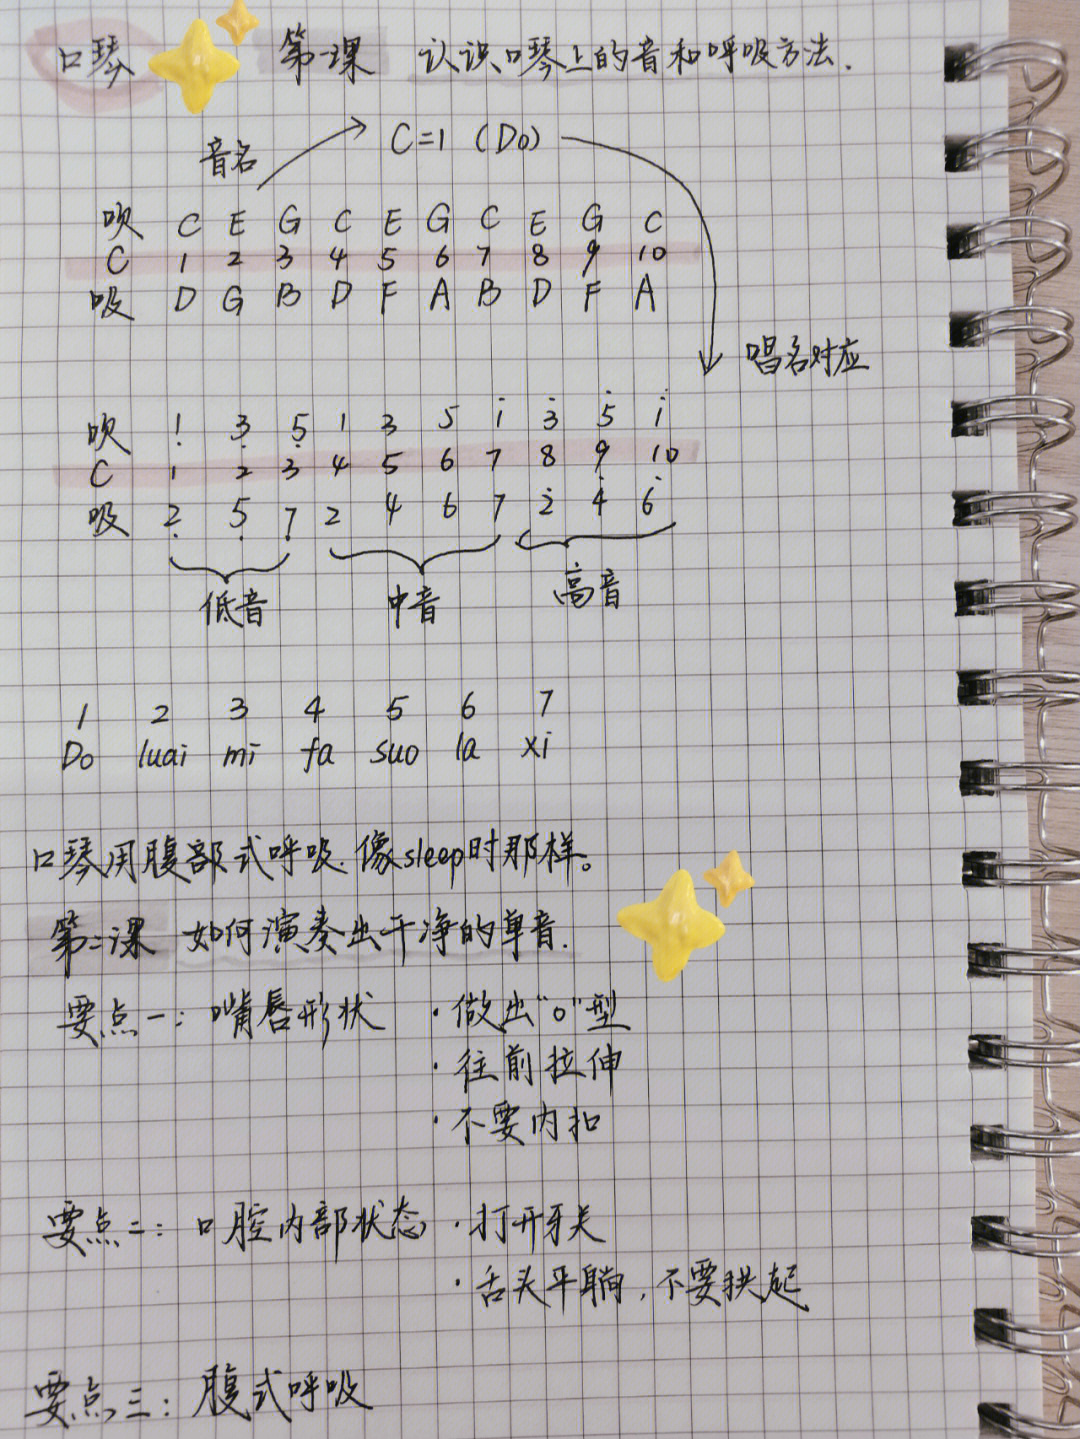 口琴 第一课 认识口琴上的音和呼吸方法.
C=1 (Do)
音名
吹 C E G C E G C E G C
C 1 2 3 4 5 6 7 8 9 10
吸 D G B D F A B D F A
唱名对应
吹 1̣ 3̣ 5̣ 1 3 5 1̇ 3̇ 5̇ 1̇
C 1 2 3 4 5 6 7 8 9 10
吸 2̣ 5̣ 7̣ 2 4 6 7 2̇ 4̇ 6̇
低音 中音 高音
1 2 3 4 5 6 7
Do luai mi fa suo la xi
口琴用腹部式呼吸.像sleep时那样。
第二课 如何演奏出干净的单音.
要点一: 嘴唇形状 ·做出"o"型
·往前拉伸
·不要内扣
要点二: 口腔内部状态 ·打开牙关
·舌头平躺,不要拱起
要点三: 腹式呼吸